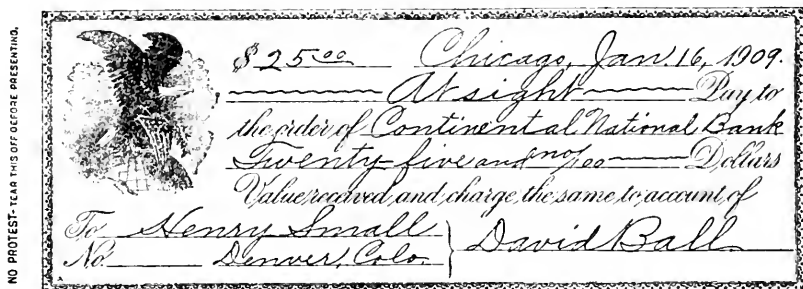 NO PROTEST-TEAR THIS OFF BEFORE PRESENTING.
$25.00 Chicago, Jan. 16, 1909.
At sight Pay to
the order of Continental National Bank
Twenty-five and no/100 Dollars
Value received and charge the same to account of
To Henry Small
No. Denver, Colo.
David Ball